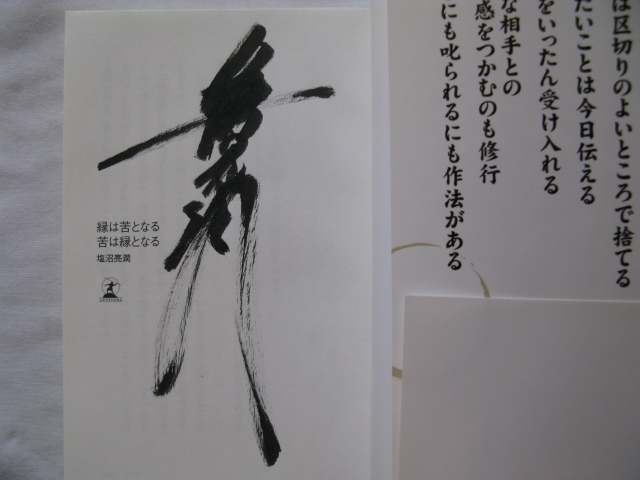 縁は苦となる
苦は縁となる
塩沼亮潤
は区切りのよいところで捨てる
たいことは今日伝える
をいったん受け入れる
な相手との
感をつかむのも修行
にも叱られるにも作法がある